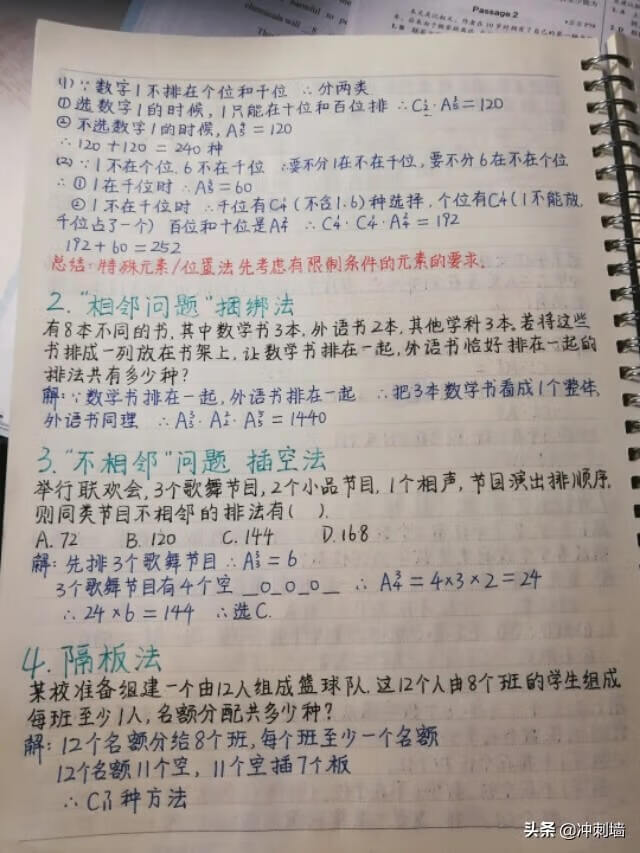 Passage 2
(1) ∵数字1不排在个位和千位 ∴分两类
①选数字1的时候,1只能在十位和百位排 ∴C₂¹·A₅³=120
②不选数字1的时候,A₅⁴=120
∴120+120=240种
(2) ∵1不在个位.6不在千位 ∴要不分1在不在千位,要不分6在不在个位
∴①1在千位时 ∴A₅³=60
②1不在千位时 ∴千位有C₄¹(不含1.6)种选择,个位有C₄¹(1不能放,
千位占了一个) 百位和十位是A₄² ∴C₄¹·C₄¹·A₄²=192
192+60=252
总结:特殊元素/位置法先考虑有限制条件的元素的要求.
2."相邻问题"捆绑法
有8本不同的书,其中数学书3本,外语书2本,其他学科3本.若将这些
书排成一列放在书架上,让数学书排在一起,外语书恰好排在一起的
排法共有多少种?
解:∵数学书排在一起,外语书排在一起 ∴把3本数学书看成1个整体,
外语书同理 ∴A₃³·A₂²·A₅⁵=1440
3."不相邻"问题 插空法
举行联欢会,3个歌舞节目,2个小品节目,1个相声,节目演出排顺序,
则同类节目不相邻的排法有( ).
A.72 B.120 C.144 D.168
解:先排3个歌舞节目∴A₃³=6
3个歌舞节目有4个空 _o_o_o_ ∴A₄³=4×3×2=24
∴24×6=144 ∴选C.
4.隔板法
某校准备组建一个由12人组成篮球队.这12个人由8个班的学生组成
每班至少1人,名额分配共多少种?
解:12个名额分给8个班,每个班至少一个名额
12个名额11个空,11个空插7个板
∴C₁₁⁷种方法
头条 @冲刺墙